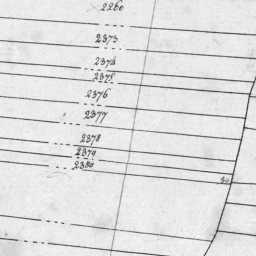 2373
2374
2375
2376
2377
2378
2379
2380